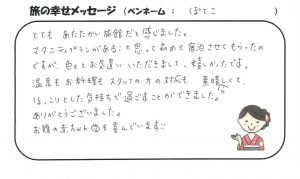 旅の幸せメッセージ（ペンネーム：ぽてこ）
とても あたたかい旅館だと感じました。
マタニティプランがあること思って初めて宿泊させてもらったの
ですが、色々とお気遣いいただきまして、嬉しかったです。
温泉もお料理もスタッフの方の対応も 素晴しくて、
ほっこりとした気持ちで過ごすことができました。
ありがとうございました。
お腹の赤ちゃんも喜んでいます!!